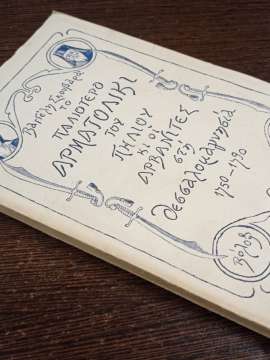 Βαγγέλη Σκουβαρᾶ
ΤΟ
ΠΑΛΙΟΤΕΡΟ
ΑΡΜΑΤΟΛΙΚΙ
ΤΟΥ
ΠΗΛΙΟΥ
ΚΙ ΟΙ
ΑΡΒΑΝΙΤΕΣ
ΣΤΗ
Θεσσαλομαγνησία
1750-1790
Βόλος